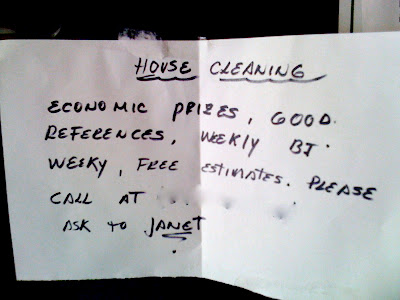 HOUSE CLEANING
ECONOMIC PRIZES, GOOD.
REFERENCES, WEEKLY BI.
WEEKY, FREE ESTIMATES. PLEASE
CALL AT
ASK TO JANET